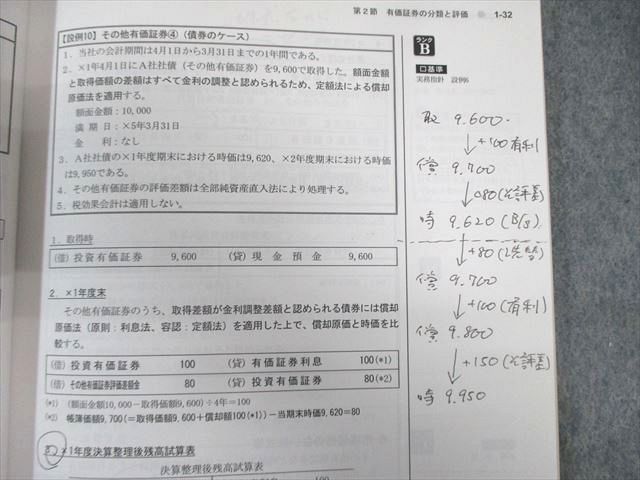 第2節 有価証券の分類と評価 1-32
【設例10】その他有価証券④（債券のケース）
1．当社の会計期間は4月1日から3月31日までの1年間である。
2．×1年4月1日にＡ社社債（その他有価証券）を9,600で取得した。額面金額
と取得価額の差額はすべて金利の調整と認められるため、定額法による償却
原価法を適用する。
額面金額：10,000
満期日：×5年3月31日
金利：なし
3．Ａ社社債の×1年度期末における時価は9,620、×2年度期末における時価
は9,950である。
4．その他有価証券の評価差額は全部純資産直入法により処理する。
5．税効果会計は適用しない。
ランク
B
口基準
実務指針 設例6
取 9.600.
↓+100有利
償 9.700
↓080(そ評差)
時 9.620(B/S)
↓+80(洗替)
償 9.700
↓+100(有利)
償 9.800
↓+150(そ評差)
時 9.950
1．取得時
(借) 投資有価証券 9,600 (貸) 現金預金 9,600
2．×1年度末
その他有価証券のうち、取得差額が金利調整差額と認められる債券には償却
原価法（原則：利息法、容認：定額法）を適用した上で、償却原価と時価を比
較する。
(借) 投資有価証券 100 (貸) 有価証券利息 100(*1)
(借) その他有価証券評価差額金 80 (貸) 投資有価証券 80(*2)
(*1) (額面金額10,000－取得価額9,600)÷4年＝100
(*2) 帳簿価額9,700(＝取得価額9,600＋償却額100(*1))－当期末時価9,620＝80
3．×1年度決算整理後残高試算表
決算整理後残高試算表